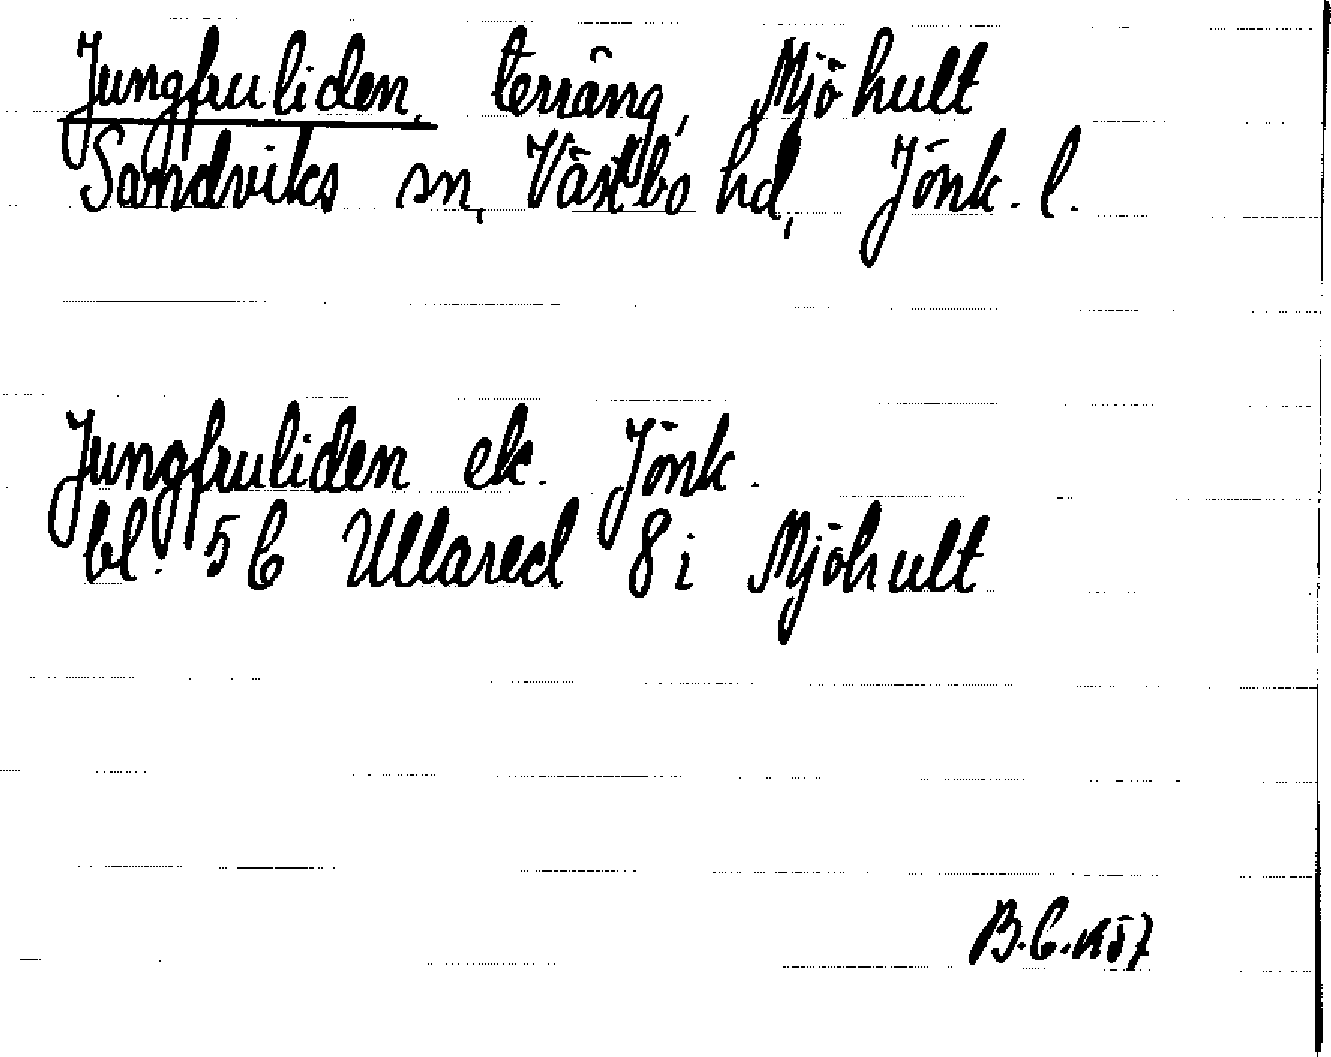 Jungfruliden, terräng, Mjöhult
Sandviks sn, Västbo hd, Jönk. l.
Jungfruliden ek. Jönk.
bl. 5 C Ullared 8 i Mjöhult
B.C. 1957